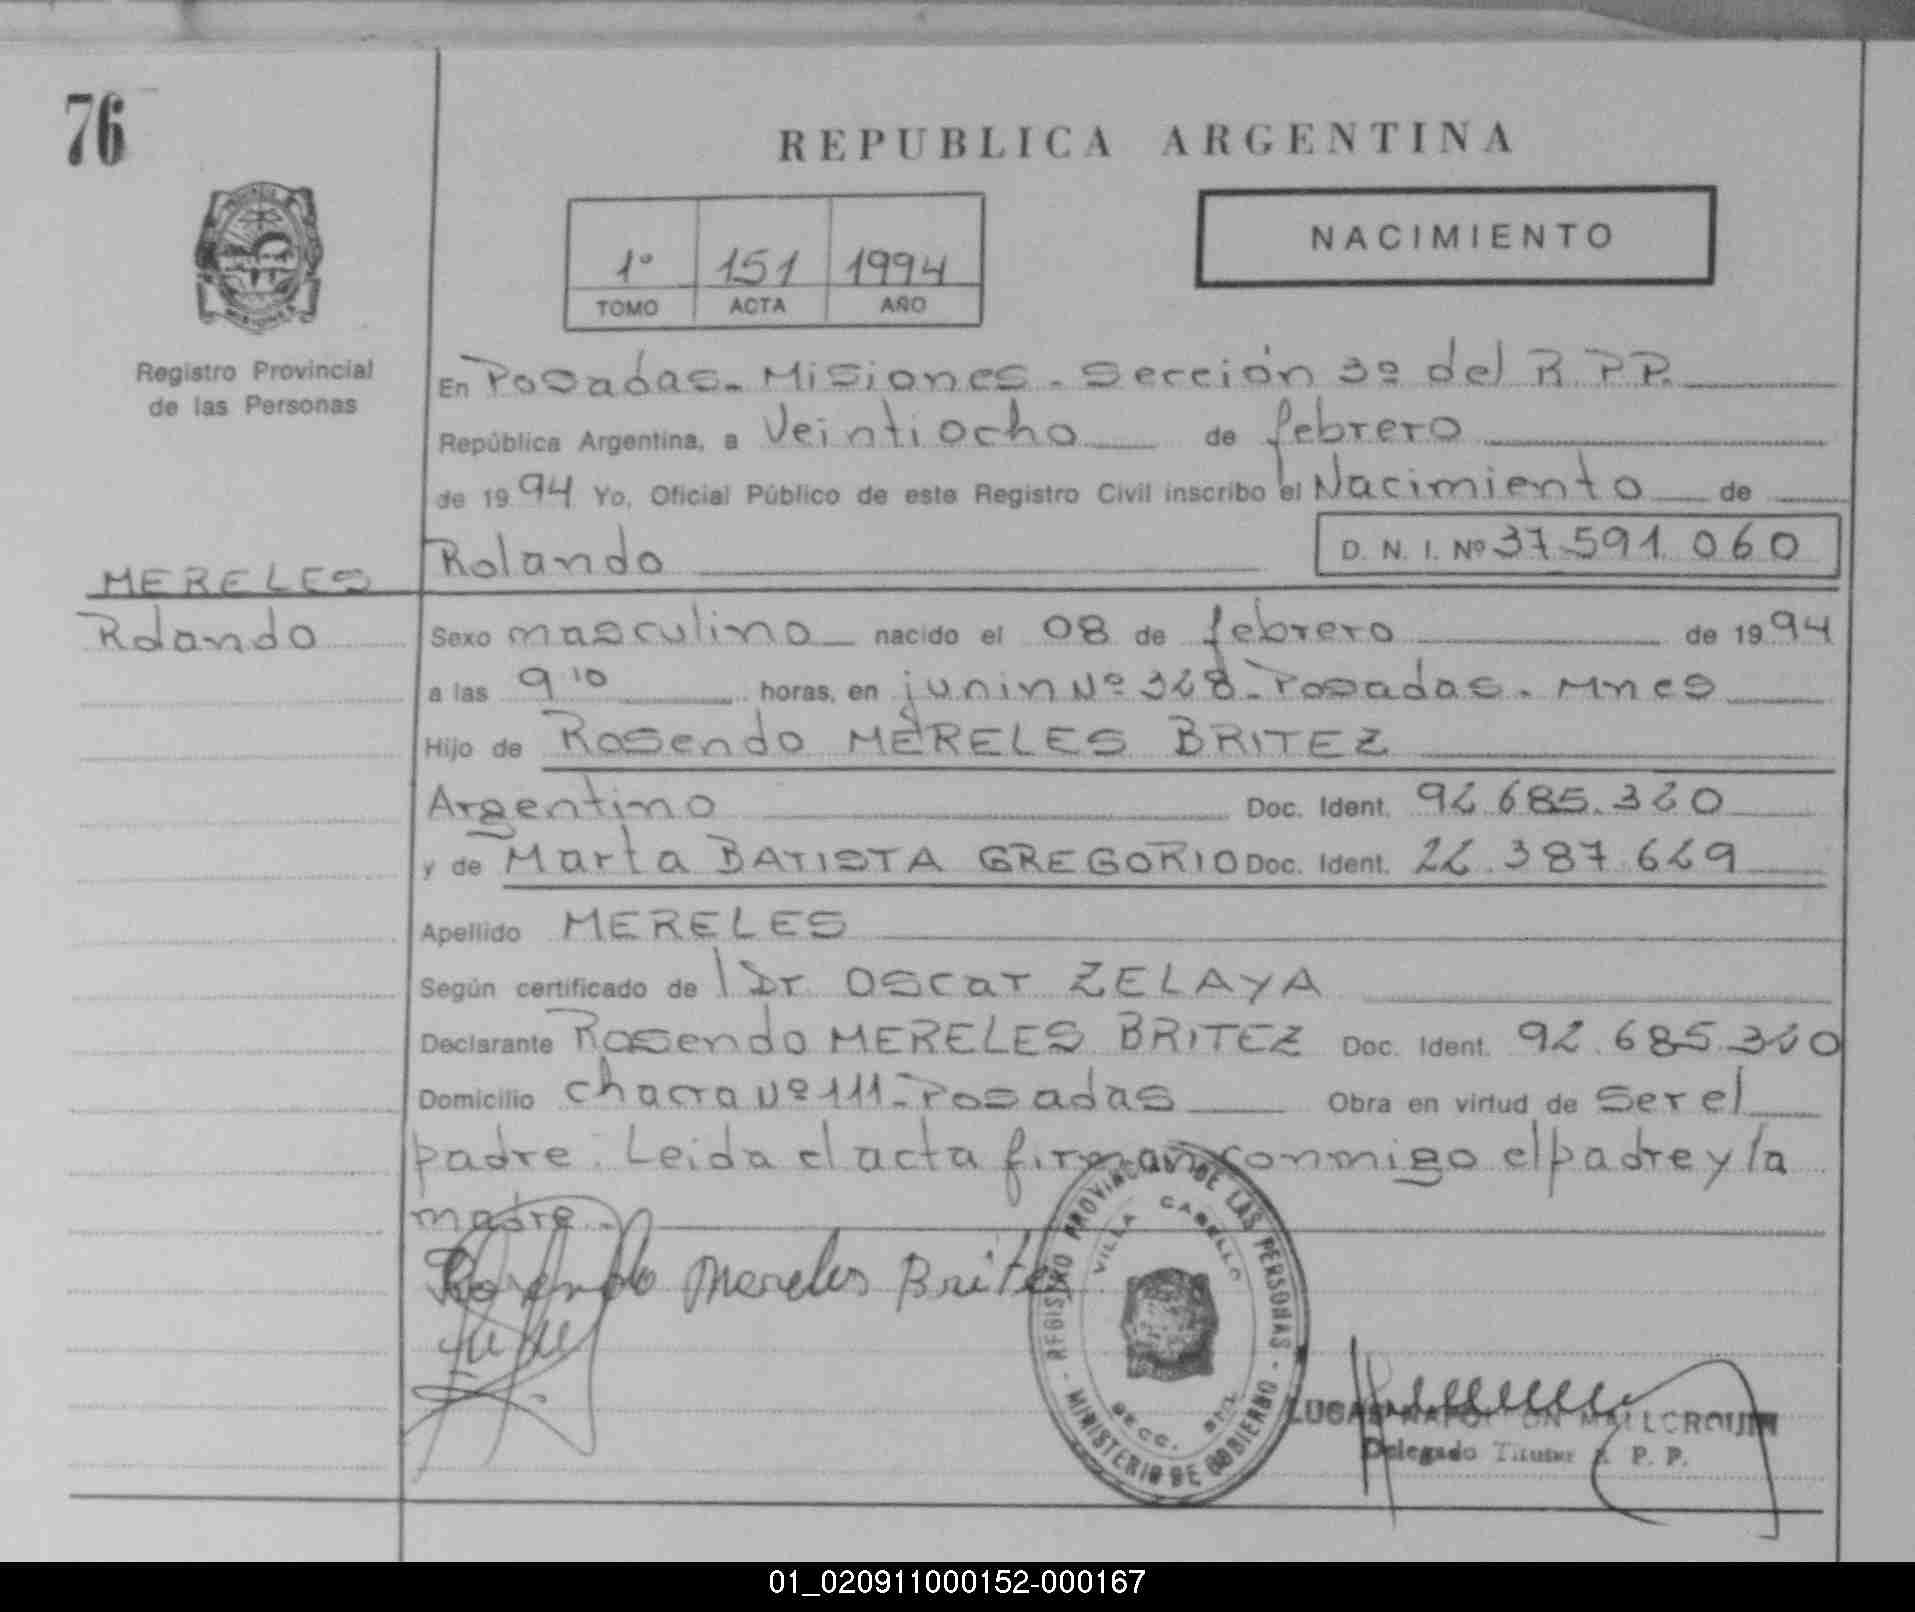 76
REPUBLICA ARGENTINA
1º 151 1994
TOMO ACTA AÑO
NACIMIENTO
Registro Provincial
de las Personas
En Posadas.- Misiones. Sección 3º del R.P.P.
República Argentina, a Veintiocho de febrero
de 1994 Yo, Oficial Público de este Registro Civil inscribo el Nacimiento de
Rolando D. N. I. Nº 37.591.060
MERELES
Rolando
Sexo masculino nacido el 08 de febrero de 1994
a las 9 10 horas, en junin Nº 328- Posadas. Mnes
Hijo de Rosendo MERELES BRITEZ
Argentino Doc. Ident. 92.685.320
y de Marta BATISTA GREGORIO Doc. Ident. 22.387.629
Apellido MERELES
Según certificado de l Dr Oscar ZELAYA
Declarante Rosendo MERELES BRITEZ Doc. Ident. 92.685.320
Domicilio chacra Nº 111- Posadas Obra en virtud de ser el
padre. Leida el acta firman conmigo el padre y la
madre.-
Rosendo Mereles Britez
REGISTRO PROVINCIAL DE LAS PERSONAS
VILLA CABELLO
SECC. 3RA
- MINISTERIO DE GOBIERNO -
LUCAS NAPOLEON MALLORQUIN
Delegado Titular R. P. P.
01_020911000152-000167